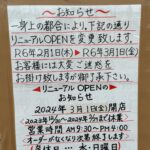 ～お知らせ～
一身上の都合により、下記の通り
リニューアルOPENを変更致します。
R6年2月1日(木)→R6年3月1日(金)
お客様には大変ご迷惑を
お掛け致しますが御了承下さい。
リニューアルOPENの
お知らせ
2024年3月1日(金)開店
営業時間 AM9:30～PM9:00